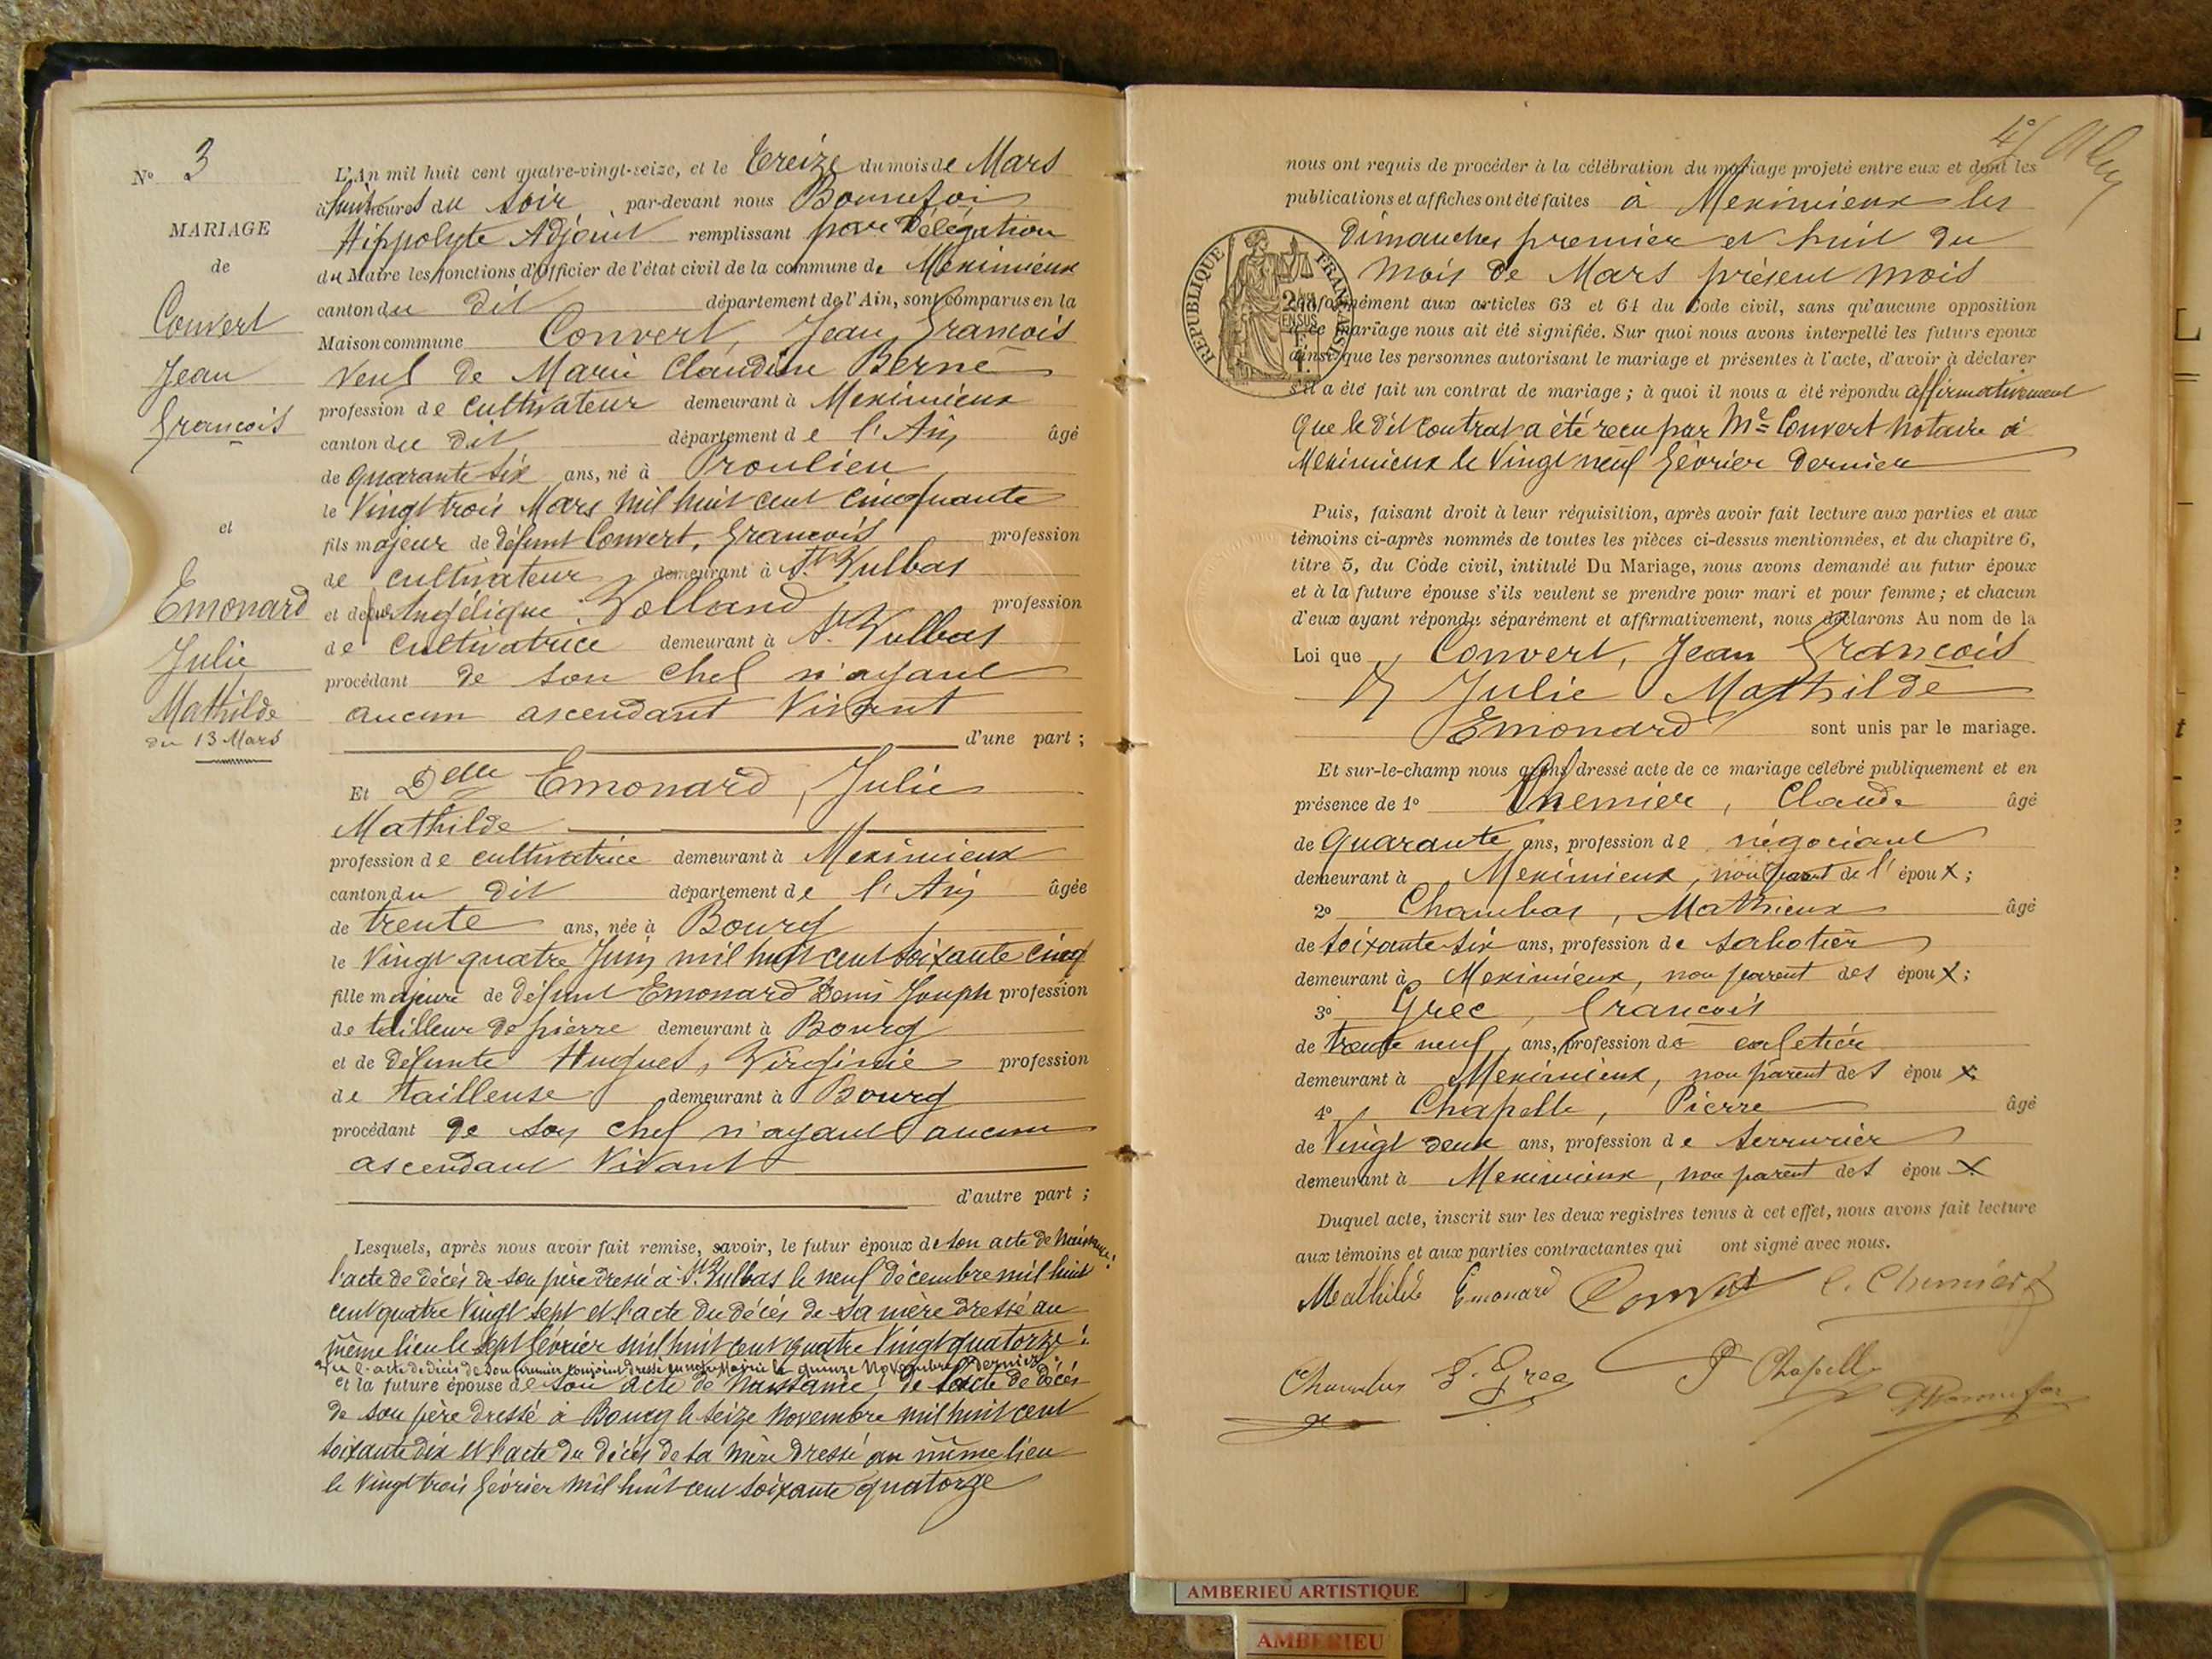 N° 3
MARIAGE
de
Convert
Jean
François
et
Emonard
Julie
Mathilde
du 13 Mars
L'An mil huit cent quatre-vingt-seize, et le treize du mois de Mars
à huit heures du soir par-devant nous Bonnefoi
Hippolyte Adjoint remplissant par Délégation
du Maire les fonctions d'Officier de l'état civil de la commune de Meximieux
canton du dit département de l'Ain, sont comparus en la
Maison commune Convert, Jean François
Veuf de Marie Claudine Berne
profession de cultivateur demeurant à Meximieux
canton du dit département de l'Ain âgé
de quarante six ans, né à Proulieu
le Vingt trois Mars mil huit cent cinquante
fils majeur de défunt Convert, François profession
de cultivateur demeurant à St Vulbas
et de Angélique Volland profession
de cultivatrice demeurant à St Vulbas
procédant de son chef n'ayant
aucun ascendant Vivant
d'une part ;
Et Delle Emonard, Julie
Mathilde
profession de cultivatrice demeurant à Meximieux
canton du dit département de l'Ain âgée
de trente ans, née à Bourg
le Vingt quatre Juin mil huit cent soixante cinq
fille majeure de défunt Emonard Denis Joseph profession
de tailleur de pierre demeurant à Bourg
et de défunte Hugues, Virginie profession
de tailleuse demeurant à Bourg
procédant de son chef n'ayant aucun
ascendant Vivant
d'autre part ;
Lesquels, après nous avoir fait remise, savoir, le futur époux de son acte de Naissance ;
l'acte de décès de son père dressé à St Vulbas le neuf décembre mil huit
cent quatre Vingt sept et l'acte du décès de sa mère dressé au
même lieu le sept février mil huit cent quatre Vingt quatorze ;
l'acte de décès de son premier conjoint dressé en notre Mairie le quinze Novembre dernier
et la future épouse de son acte de Naissance ; de l'acte de décès
de son père dressé à Bourg le seize Novembre mil huit cent
soixante dix et l'acte du décès de sa mère dressé au même lieu
le Vingt trois février mil huit cent soixante quatorze
4°
nous ont requis de procéder à la célébration du mariage projeté entre eux et dont les
publications et affiches ont été faites à Meximieux les
Dimanches premier et huit du
mois de Mars présent mois
conformément aux articles 63 et 64 du Code civil, sans qu'aucune opposition
à ce mariage nous ait été signifiée. Sur quoi nous avons interpellé les futurs époux
ainsi que les personnes autorisant le mariage et présentes à l'acte, d'avoir à déclarer
s'il a été fait un contrat de mariage ; à quoi il nous a été répondu affirmativement
Que le dit contrat a été reçu par Me Convert Notaire à
Meximieux le Vingt neuf février dernier
REPUBLIQUE FRANÇAISE
Puis, faisant droit à leur réquisition, après avoir fait lecture aux parties et aux
témoins ci-après nommés de toutes les pièces ci-dessus mentionnées, et du chapitre 6,
titre 5, du Code civil, intitulé Du Mariage, nous avons demandé au futur époux
et à la future épouse s'ils veulent se prendre pour mari et pour femme ; et chacun
d'eux ayant répondu séparément et affirmativement, nous déclarons Au nom de la
Loi que Convert, Jean François
Et Julie Mathilde
Emonard sont unis par le mariage.
Et sur-le-champ nous avons dressé acte de ce mariage célébré publiquement et en
présence de 1° Chemier, Claude âgé
de quarante ans, profession de négociant
demeurant à Meximieux, non parent de l'époux ;
2° Chambas, Mathieux âgé
de soixante six ans, profession de sabotier
demeurant à Meximieux, non parent des époux ;
3° Grec, François
de trente neuf ans, profession de cafetier
demeurant à Meximieux, non parent des époux
4° Chapelle, Pierre âgé
de Vingt deux ans, profession de serrurier
demeurant à Meximieux, non parent des époux
Duquel acte, inscrit sur les deux registres tenus à cet effet, nous avons fait lecture
aux témoins et aux parties contractantes qui ont signé avec nous.
Mathilde Emonard Convert C. Chemier
Chambas F. Grec P Chapelle Bonnefoi
AMBERIEU ARTISTIQUE
AMBERIEU